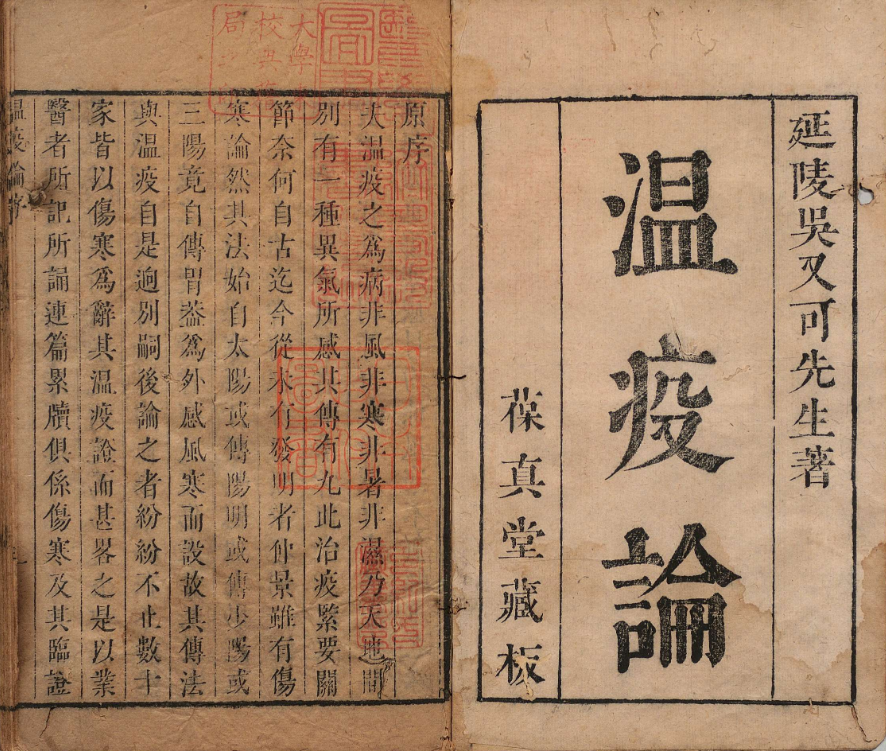 延陵吳又可先生著
温疫論
葆真堂藏板
原序
夫温疫之爲病非風非寒非暑非濕乃天地間
別有一種異氣所感其傳有九此治疫緊要關
節奈何自古迄今從未有發明者仲景雖有傷
寒論然其法始自太陽或傳陽明或傳少陽或
三陽竟自傳胃葢爲外感風寒而設故其傳法
與温疫自是逈別嗣後論之者紛紛不止數十
家皆以傷寒爲辭其温疫證而甚畧之是以業
醫者所記所誦連篇累牘俱係傷寒及其臨證
温疫論序
大學
校典
局之